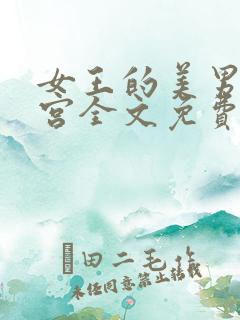 女王的美男
宫全文免費
田二毛作
未经同意禁止转载